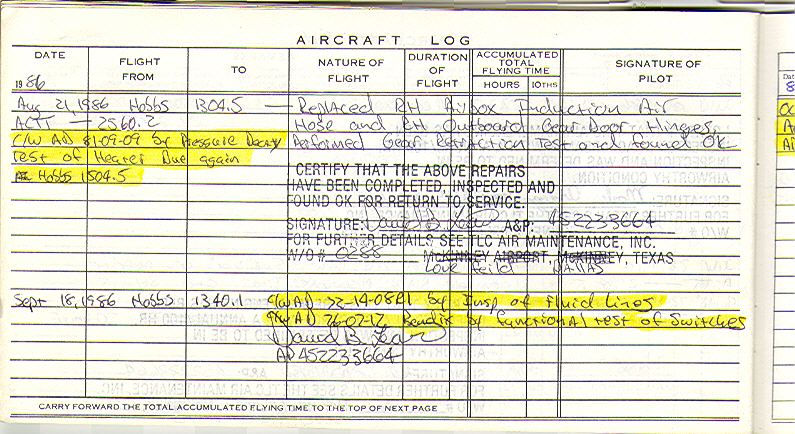 AIRCRAFT LOG
DATE
FLIGHT FROM
TO
NATURE OF FLIGHT
DURATION OF FLIGHT
ACCUMULATED TOTAL FLYING TIME
HOURS
10THS
SIGNATURE OF PILOT
1986
Aug 21, 1986 Hobbs 1304.5 — Replaced RH Airbox Induction Air
ACTT — 2560.2 Hose and RH Outboard Gear Door Hinges,
C/W AD 81-09-09 by Pressure Decay Performed Gear Retraction Test and found OK
test of Heater Due again
Hobbs 1504.5
CERTIFY THAT THE ABOVE REPAIRS
HAVE BEEN COMPLETED, INSPECTED AND
FOUND OK FOR RETURN TO SERVICE.
SIGNATURE: David B. A&P: 452233664
FOR FURTHER DETAILS SEE TLC AIR MAINTENANCE, INC.
W/O # 0288 McKINNEY AIRPORT, McKINNEY, TEXAS
Love Feild DALLAS
Sept 18, 1986 Hobbs 1340.1 C/W AD by Insp of Fluid Lines
C/W AD 76-07-12 Bendix by functional test of Switches
David B.
AP 452233664
CARRY FORWARD THE TOTAL ACCUMULATED FLYING TIME TO THE TOP OF NEXT PAGE